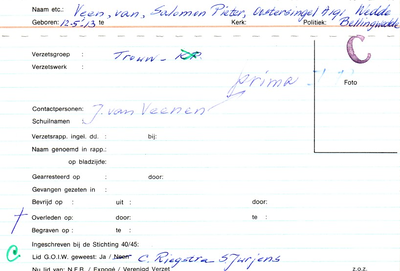 Naam etc.: Veen, van, Salomon Pieter, Oostersingel A191 Wedde
Geboren: 12.5.'13 te Kerk: Politiek: Bellingwolde
C
Verzetsgroep : Trouw - K.P.
Verzetswerk : prima
Foto
Contactpersonen: J. van Veenen
Schuilnamen :
Verzetsrapp. ingel. dd. : bij:
Naam genoemd in rapp.:
op bladzijde:
Gearresteerd op : door:
Gevangen gezeten in :
Bevrijd op : uit : door:
Overleden op: door: te :
Begraven op : te :
Ingeschreven bij de Stichting 40/45:
C Lid G.O.I.W. geweest: Ja / Neen C. Riegstra S Jurjens
Nu lid van: N.F.R. / Expogé / Verenigd Verzet z.o.z.